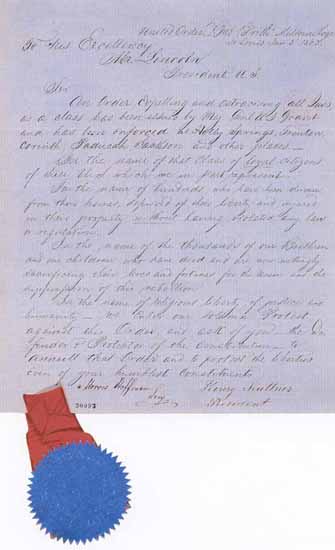 United Order "Bne B'rith" Missouri Lodge
St Louis Jan 5 1863
To His Excellency
Mr. Lincoln
President U.S.
Sir
An Order expelling and ostracising all Jews
as a class has been issued by Maj Genl U.S. Grant
and has been enforced at Holly Springs, Trenton,
Corinth, Paducah, Jackson and other places.—
In the name of that Class of loyal citizens
of these U.S. which we in part represent.
In the name of hundreds, who have been driven
from their houses, deprived of their liberty and injured
in their property without having violated any law
or regulation.
In the name of the thousands of our Brethren
and our children who have died and are now willingly
sacrificing their lives and fortunes for the Union and the
suppression of this rebellion.
In the name of religious liberty, of justice and
humanity — we enter our solemn Protest
against this Order, and ask of you — the De-
fender & Protector of the Constitution — to
annull that Order and to protect the liberties
even of your humblest Constituents
Morris Hoffman
Secy
Henry Kuttner
President
20093